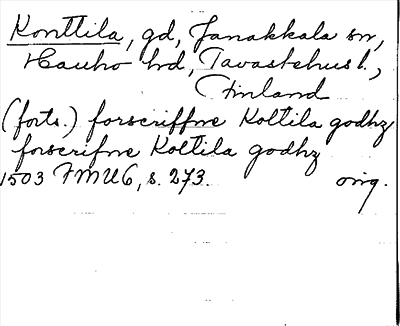 Konttila, gd, Janakkala sn,
Hauho hd, Tavastehus l.,
Finland
(forts.) forscriffne Koltila godhz
forscrifne Koltila godhz
1503 FMU6, s. 273. orig.